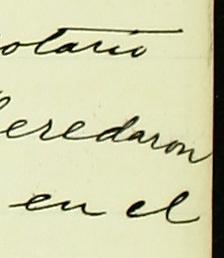 notario
heredaron
en el